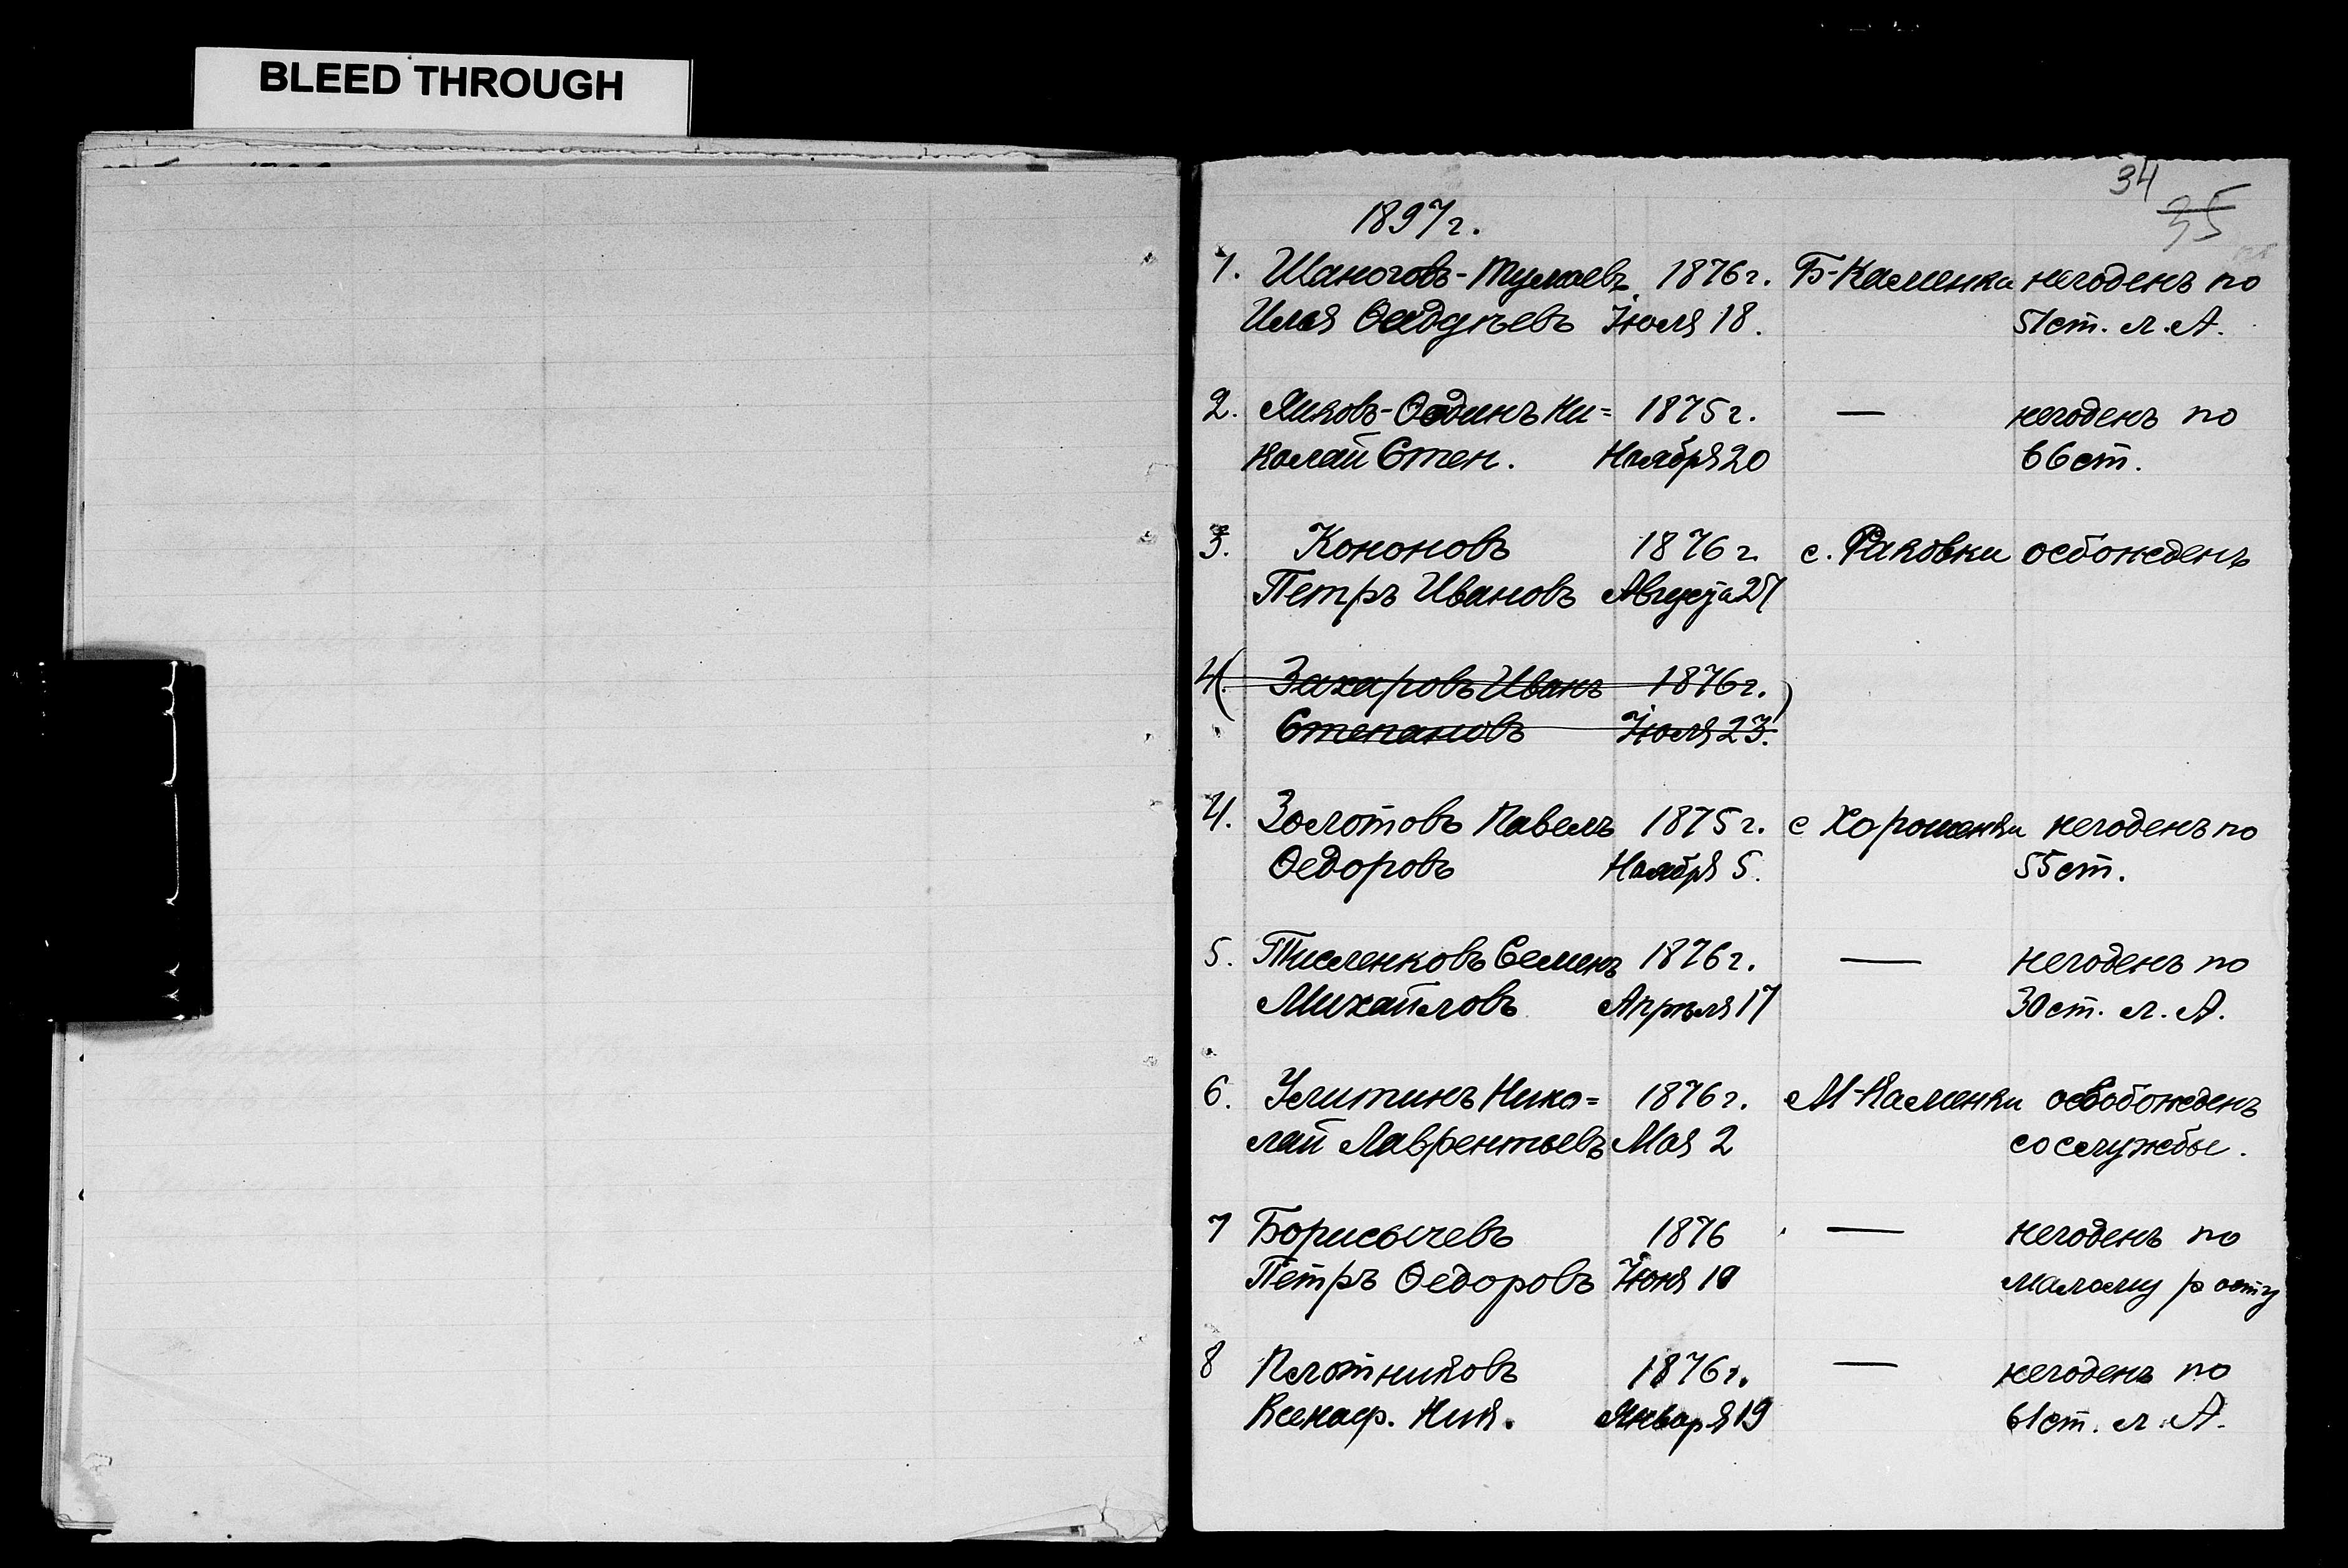 BLEED THROUGH
34
35
1897 г.
1. Шаногов-Тумаевъ 1876 г. Б-Каменка негоденъ по
Илья Іюля 18. 51 ст. л. А.
2. Ни= 1875 г. — негоденъ по
колай Степ. Ноября 20 66 ст.
3. Кононовъ 1876 г. с. Раковки осбожденъ
Петръ Ивановъ Августа 27
4. Захаровъ Иванъ 1876 г.
Степановъ Іюля 23.
4. Золотовъ Павелъ 1875 г. с Хорошенки негоденъ по
Ѳедоровъ Ноября 5. 55 ст.
5. Тисленковъ Семенъ 1876 г. — негоденъ по
Михайловъ Апрѣля 17 30 ст. л. А.
6. Улитинъ Нико= 1876 г. М-Каменки освобожденъ
лай Лаврентьевъ Мая 2 со службы.
7 Борисычевъ 1876 — негоденъ по
Петръ Ѳедоровъ Іюня 19 малому росту
8 Плотниковъ 1876 г. — негоденъ по
Ксеноф. Ник. Января 19 61 ст. л. А.